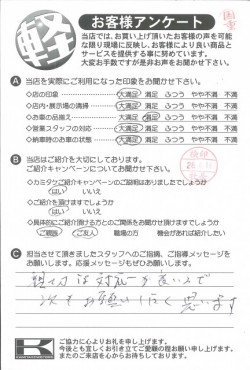 軽
お客様アンケート
当店では、お買い上げ頂いたお客様の声を可能
な限り現場に反映し、お客様により良い商品と
サービスを提供する事に努めています。
大変お手数ですが是非お声をお聞かせ下さい。
A 当店を実際にご利用になった印象をお聞かせ下さい。
◇店の印象 大満足 満足 ふつう やや不満 不満
◇店内・展示場の清掃 大満足 満足 ふつう やや不満 不満
◇お車の品揃え 大満足 満足 ふつう やや不満 不満
◇営業スタッフの対応 大満足 満足 ふつう やや不満 不満
◇納車時のお車の状態 大満足 満足 ふつう やや不満 不満
B 当店はご紹介を大切にしております。
ご紹介キャンペーンについてお聞かせ下さい。
◇カミタケご紹介キャンペーンのご説明はありましたでしょうか
はい いいえ
◇ご紹介を頂けますでしょうか
はい いいえ
◇具体的にご紹介頂ける方とのご関係をお聞かせ頂けますでしょうか
ご親戚 ご友人 職場の方 機会があれば紹介したい
C 担当させて頂きましたスタッフへのご指摘、ご指導メッセージを
お願いします。応援メッセージもぜひお願いします。
対応が良いので
次もお願いしたく思います
K
ご協力に心よりお礼を申し上げます。
今後とも宜しくお引き立てご愛顧の程お願い申し上げます。
またのご来店を心からお待ちしております。